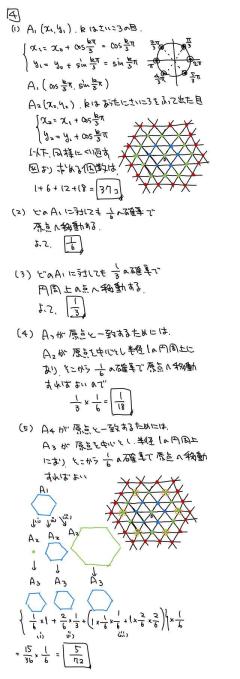 4
(1) A₁(x₁, y₁). kはさいころの目.
x₁ = x₀ + cos kπ/3 = cos kπ/3
y₁ = y₀ + sin kπ/3 = sin kπ/3
A₁(cos kπ/3, sin kπ/3)
A₂(x₂, y₂). kはあらたにさいころをふって出た目
x₂ = x₁ + cos kπ/3
y₂ = y₁ + sin kπ/3
以下, 同様にくり返す
図より 求める個数は
1+6+12+18 = 37コ
(2) どのA₁に対しても 1/6の確率で
原点へ移動する.
よって, 1/6
(3) どのA₁に対しても 1/3の確率で
円周上の点へ移動する.
よって, 1/3
(4) A₃が原点と一致するためには,
A₂が原点を中心とし半径1の円周上に
あり, そこから 1/6の確率で原点へ移動
すればよいので
1/3 × 1/6 = 1/18
(5) A₄が原点と一致するためには,
A₃が原点を中心とし, 半径1の円周上
にあり, そこから 1/6の確率で原点へ移動
すればよい
A₁
(i) (ii) (iii)
A₂ A₂ A₂
A₃ A₃ A₃
{1/6 × 1 + 2/6 × 1/3 + (1 × 1/6 × 1/6 + 1 × 2/6 × 2/6)} × 1/6
(i) (ii) (iii)
= 15/36 × 1/6 = 5/72